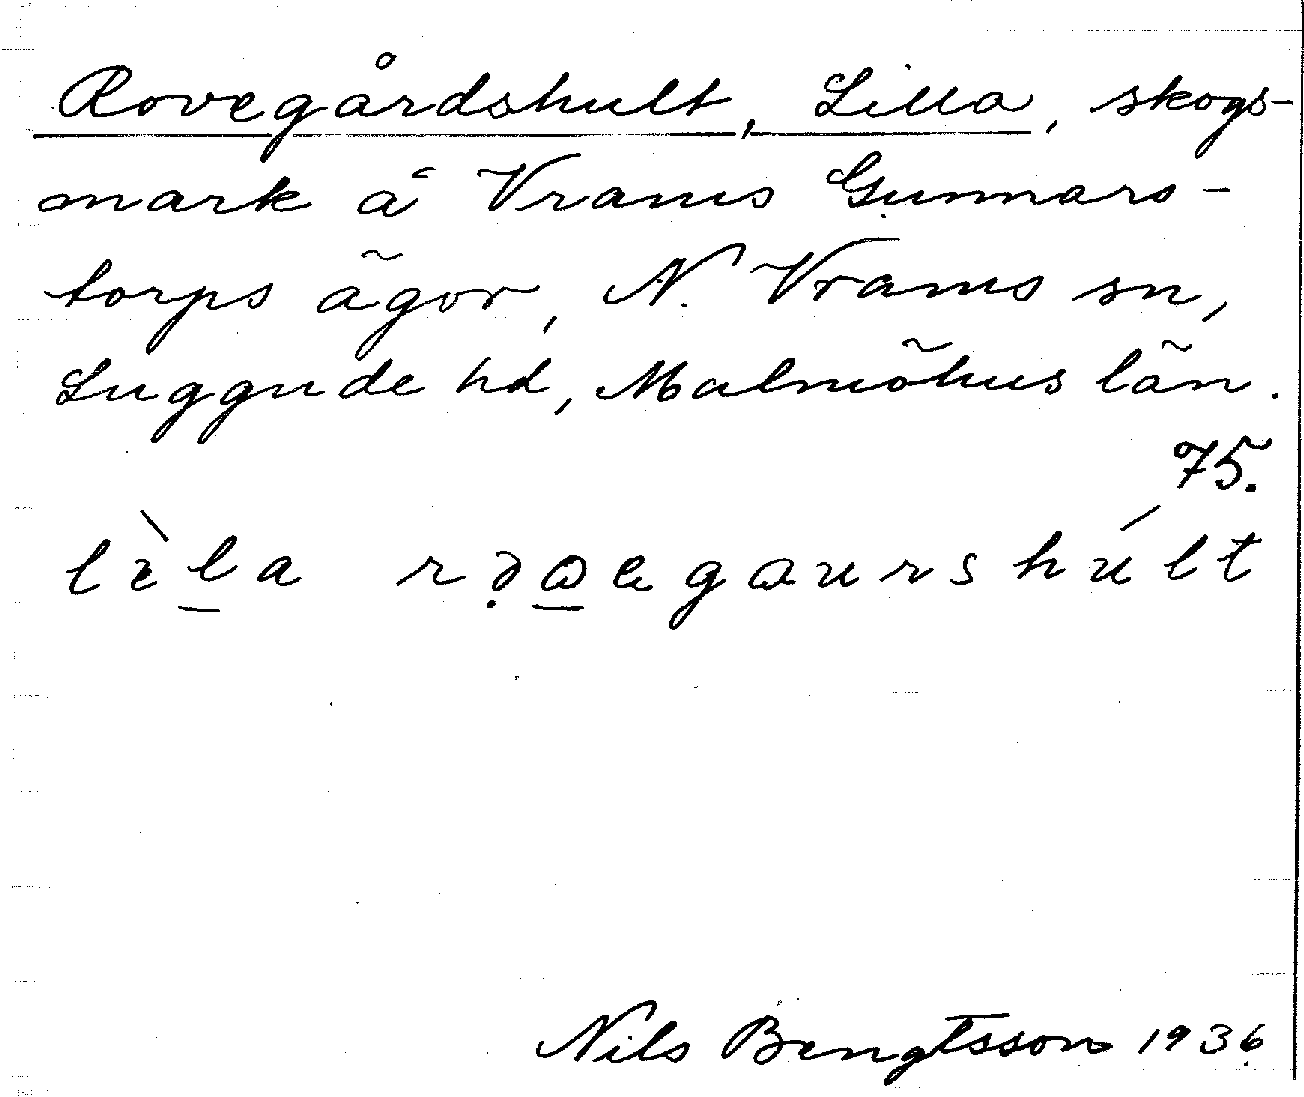 Rovegårdshult, Lilla, skogs-
mark å Vrams Gunnars-
torps ägor, N. Vrams sn,
Luggude hd, Malmöhus län.
75.
lìl̲a
Nils Bengtsson 1936.